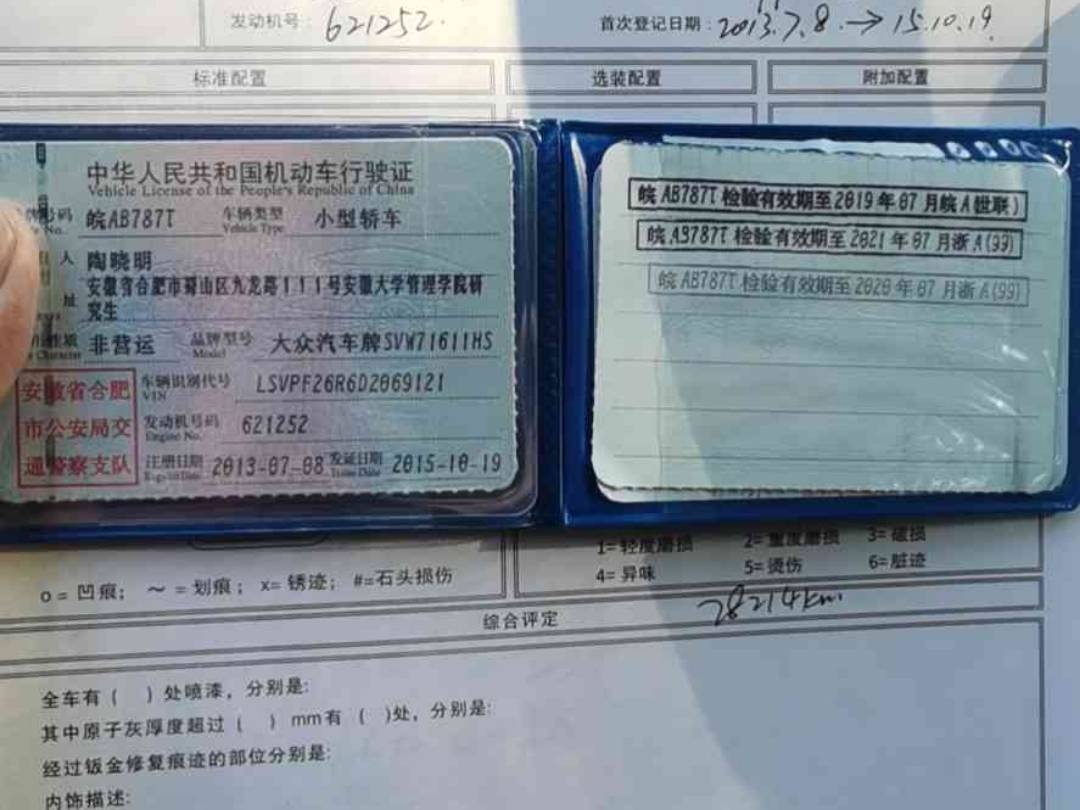 发动机号：621252.
首次登记日期：2013.7.8.→15.10.19
标准配置
选装配置
附加配置
中华人民共和国机动车行驶证
Vehicle License of the People's Republic of China
牌号码 皖AB787T 车辆类型 小型轿车
No. Vehicle Type
人 陶晓明
址 安徽省合肥市蜀山区九龙路111号安徽大学管理学院研
究生
非营运 品牌型号 大众汽车牌SVW71611HS
Character Model
安徽省合肥
市公安局交
通警察支队
车辆识别代号 LSVPF26R6D2069121
VIN
发动机号码 621252
Engine No.
注册日期 2013-07-08 发证日期 2015-10-19
Issue Date
皖AB787T 检验有效期至2019年07月皖A(世联)
皖AB787T 检验有效期至2021年07月浙A(99)
皖AB787T 检验有效期至2020年07月浙A(99)
1=轻度磨损 2=重度磨损 3=破损
4=异味 5=烫伤 6=脏迹
o=凹痕； ～=划痕； x=锈迹； #=石头损伤
综合评定
28214km.
全车有（ ）处喷漆，分别是:
其中原子灰厚度超过（ ）mm有（ )处，分别是:
经过钣金修复痕迹的部位分别是:
内饰描述: